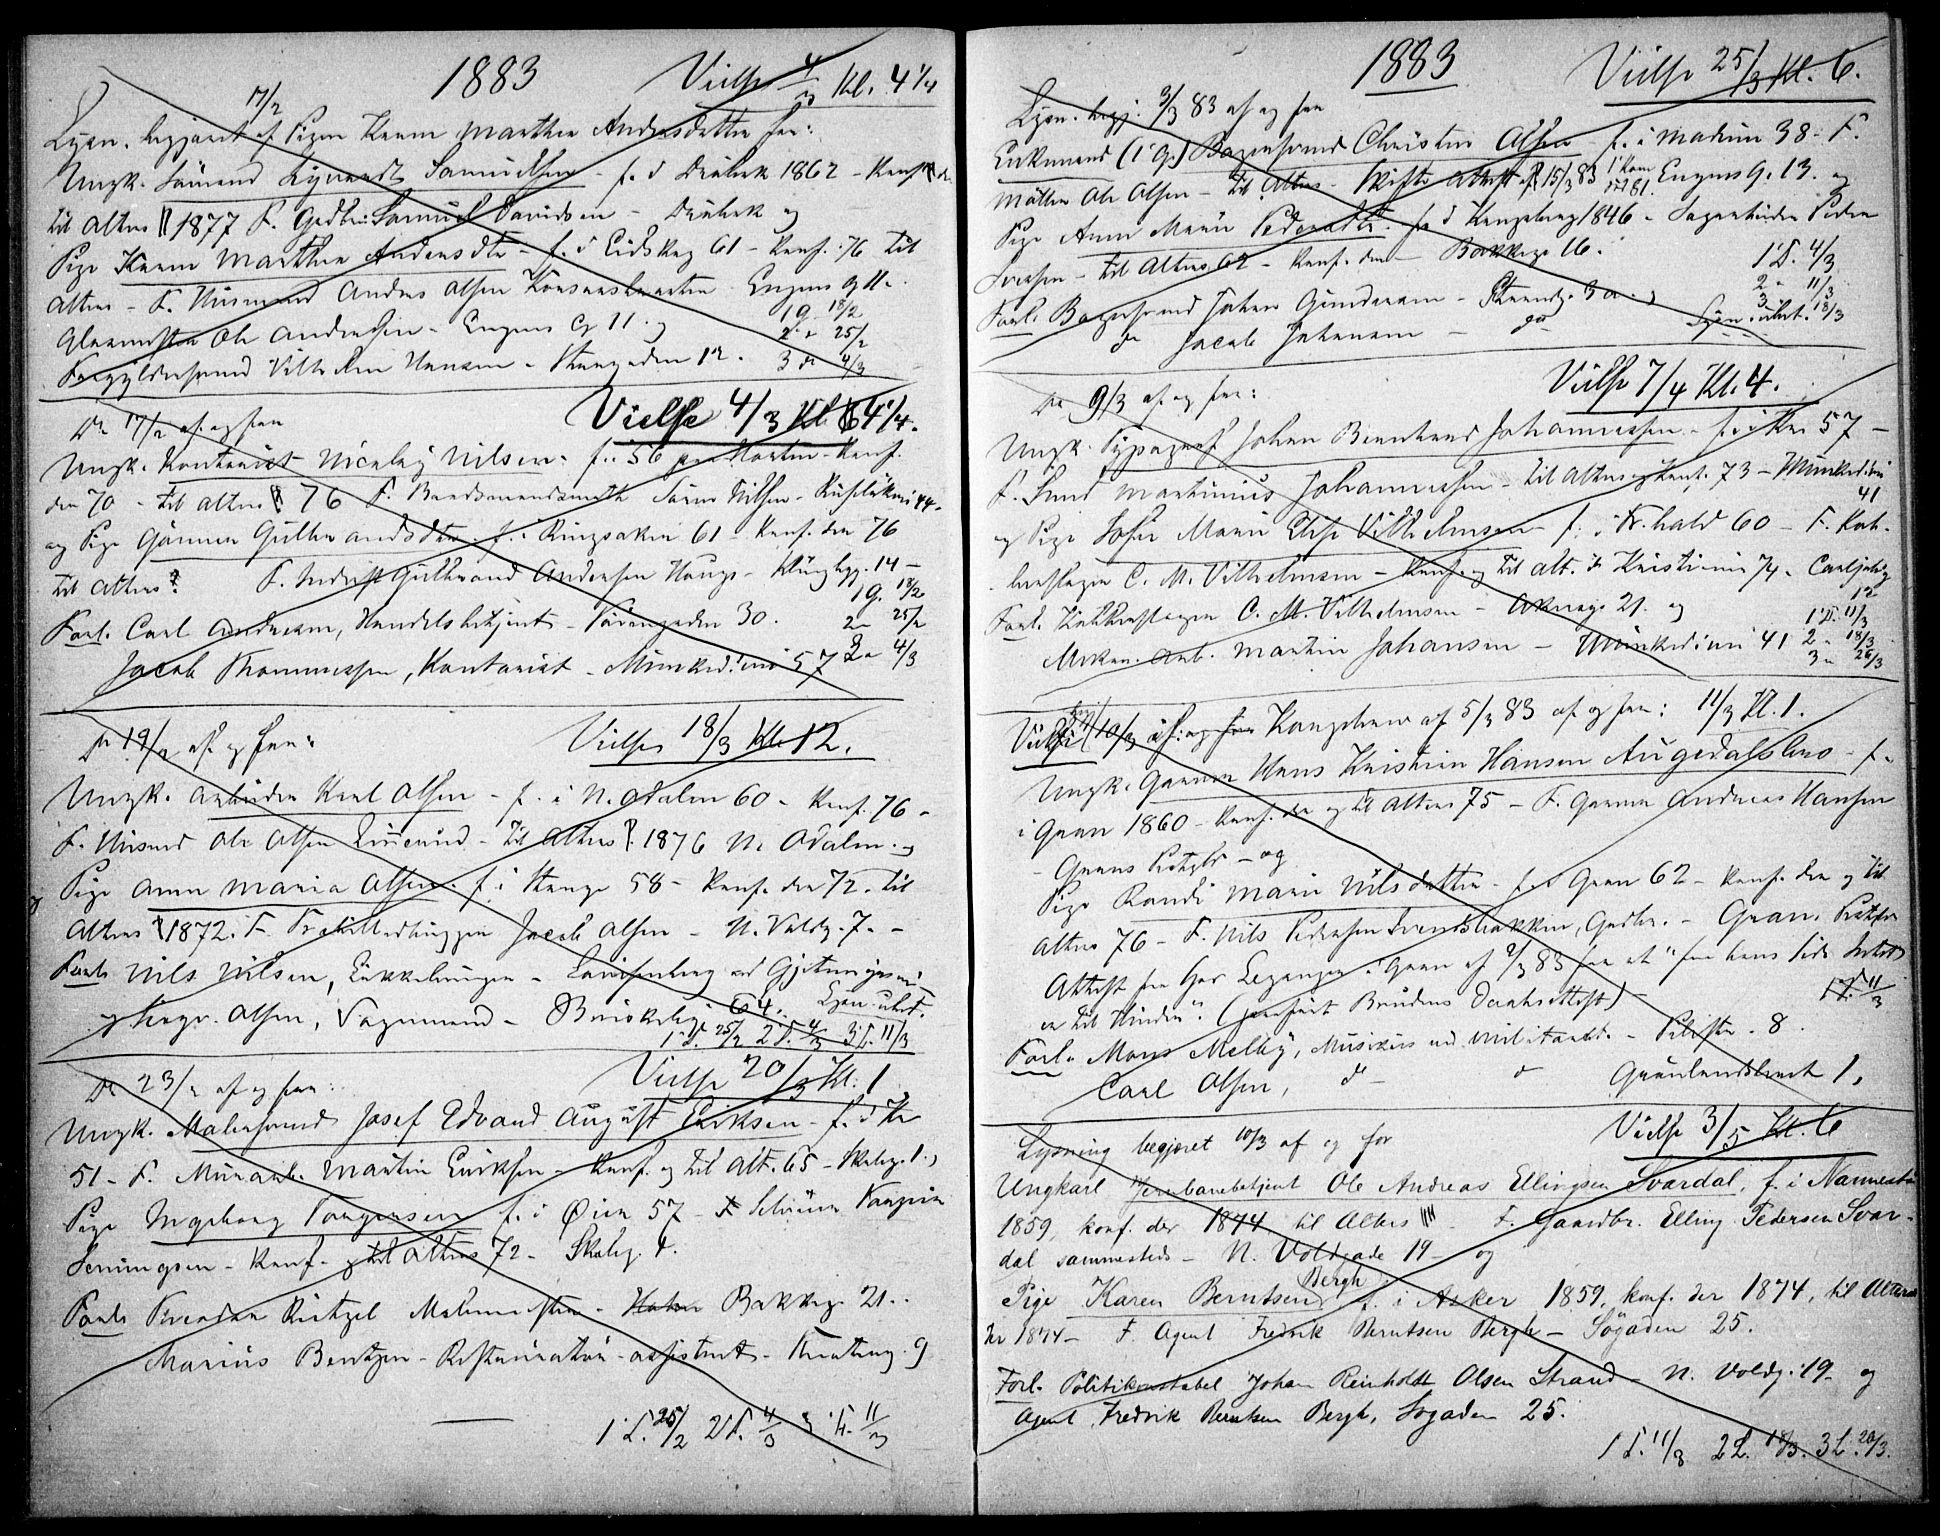 1883 Vielse 4/3 Kl. 4 1/4
17/2
Lysn. begjæret af Pigen Karen Marthea Andersdatter for:
Ungk. Sømand Samuelsen - f. i Drøbak 1862 - Konf.
til Alters 1877 F. Gadbr. Samuel Davidsen - Drøbak og
Pige Karen Marthea Andersdtr - f. i Eidskog 61 - Konf. 76 til
Alters - F. Husmand Anders Olsen Enggns g 11.
Glarmester Ole Andresen - Enggns g 11. og 1 G. 18/2
2 " 25/2
Forgyldersvend Vilhelm Hansen - Storgaden 12. 3 " 4/3
Do 17/2 af og for Vielse 4/3 Kl. 4 1/4.
Ungk. Kontorist Nicolay Nilsen - f. 56 paa Horten - Konf.
der 70 - til Alters 76 F. Baadsmandsmath Nilsen - 44.
og Pige Gunner Gulbrandsdtr. f. i Ringsaker 61 - Konf. der 76
til Alters? F. Indrst Gulbrand Andersen Haugs - Klingbgg. 14 -
1 G. 18/2
Forl. Carl Andresen, Handelsbetjent - 30. 2 " 25/2
Jacob Thommesen, Kontorist - Munkedamsv 57 3 " 4/3
Do 19/2 af og for: Vielse 18/3 Kl. 12.
Ungk. Arbeider Karl Olsen - f. i N. Odalen 60 - Konf. 76 -
F. Husmd Ole Olsen - til Alters 1876 N. Odalen. og
Pige Anna Maria Olsen. f. i Stange 58 - Konf. der 72. til
Alters 1872. F. Jacob Olsen - N. Voldg. 7. -
Forl. Nils Nilsen, - Louisenberg ved
og Olsen, Vognmand - 64. Lysn. uhet.
1 L. 25/2 2 L. 4/3 3 L. 11/3
Do 23/2 af og for: Vielse 20/3 Kl. 1
Ungk. Malersvend Josef Edvard August Eriksen - f. i Kr
51 - F. Murarb. Martin Eriksen - Konf. og til Alt. 65 - 1. og
Pige Ingeborg Torgersen f. i Øier 57 -
Henningsen - Konf. og til Alters 72 -
Forl. Malermester - Bakkeg. 21.
Marius Bentzen - Restauratør - assistent - 9
1 L. 25/2 2 L. 4/3 3 L. 11/3
1883 Vielse 25/3 Kl. 6.
Lysn. begj. 3/3 83 af og for
Enkemand (1 G.) Bagersvend Christen Olsen - f. i Modum 38 - F.
Møller Ole Olsen - til Alters - Skifte Attest af 15/3 83 Enggns g. 13. og
Pige Anne Marie Pedersdtr. f. i Kongsberg 1846 - Sagarbeider Peder
Iversen - til Alters 62 - Konf. der - Bakkeg 16. 1 L. 4/3
2 " 11/3
Forl. Bagersvend Johan Gundersen - 3 a. og 3 " 18/3
do Jacob Johansen - do Lysn. uhet.
Do 9/3 af og for: Vielse 7/4 Kl. 4.
Ungk. Typograf Johan Bernhard Johannessen - f. i Kr 57 -
F. Smed Martinius Johannessen - til Alters og Konf. 73 - Munkedsvei
41
og Pige Sofie Marie Elise Vilhelmsen - f. i Fr.hald 60 - F. Kob-
berslager C. M. Vilhelmsen - Konf. og til Alt. i Kristiania 74 - Carljohg
12
Forl. Kobberslager C. M. Vilhelmsen - Akersg. 21. og 1 L. 11/3
Mekan. Arb. Martin Johansen - Munkedsvei 41 2 " 18/3
3 " 26/3
Vielse (10/3 af og for Kongebrev af 5/3 83 af og for: 11/3 Kl. 1.
Ungk. Garver Hans Kristian Hansen Augedalsbro - f.
i Gran 1860 - Konf. der og til Alters 75 - F. Garver Andreas Hansen
- Grans Prstgld - og
Pige Randi Marie Nilsdatter - f. i Gran 62 - Konf. der og til
Alters 76 - F. Nils Pedersen Svendsbakken, Gadbr. - Gran. Prstgld
Attest fra Hør i Gran af 2/3 83 for at "fra hans Side Intet
er til Hinder". (forevist Brudens Daabsattest) - 1 L. 11/3
Forl. Mons Melby, Musikus ved Militæret. - 8.
Carl Olsen, do - do Grønlandsleret 1.
Lysning begjæret 10/3 af og for Vielse 3/5 Kl. 6
Ungkarl Jernbanebetjent Ole Andreas Ellingsen Svardal, f. i Nannestad
1859, konf. der 1874 til Alters F. Gaardbr. Elling Pedersen Svar-
dal sammesteds - N. Voldgade 19 - og
Pige Karen Berntsen Bergh f. i Asker 1859, konf. der 1874, til Alters
der 1874 - F. Agent Fredrik Berntsen Bergh - Søgaden 25.
Forl. Politikonstabel Johan Reinholdt Olsen Strand - N. Voldg. 19 - og
Agent Fredrik Berntsen Bergh, Søgaden 25.
1 L. 11/3 2 L. 18/3. 3 L. 26/3.